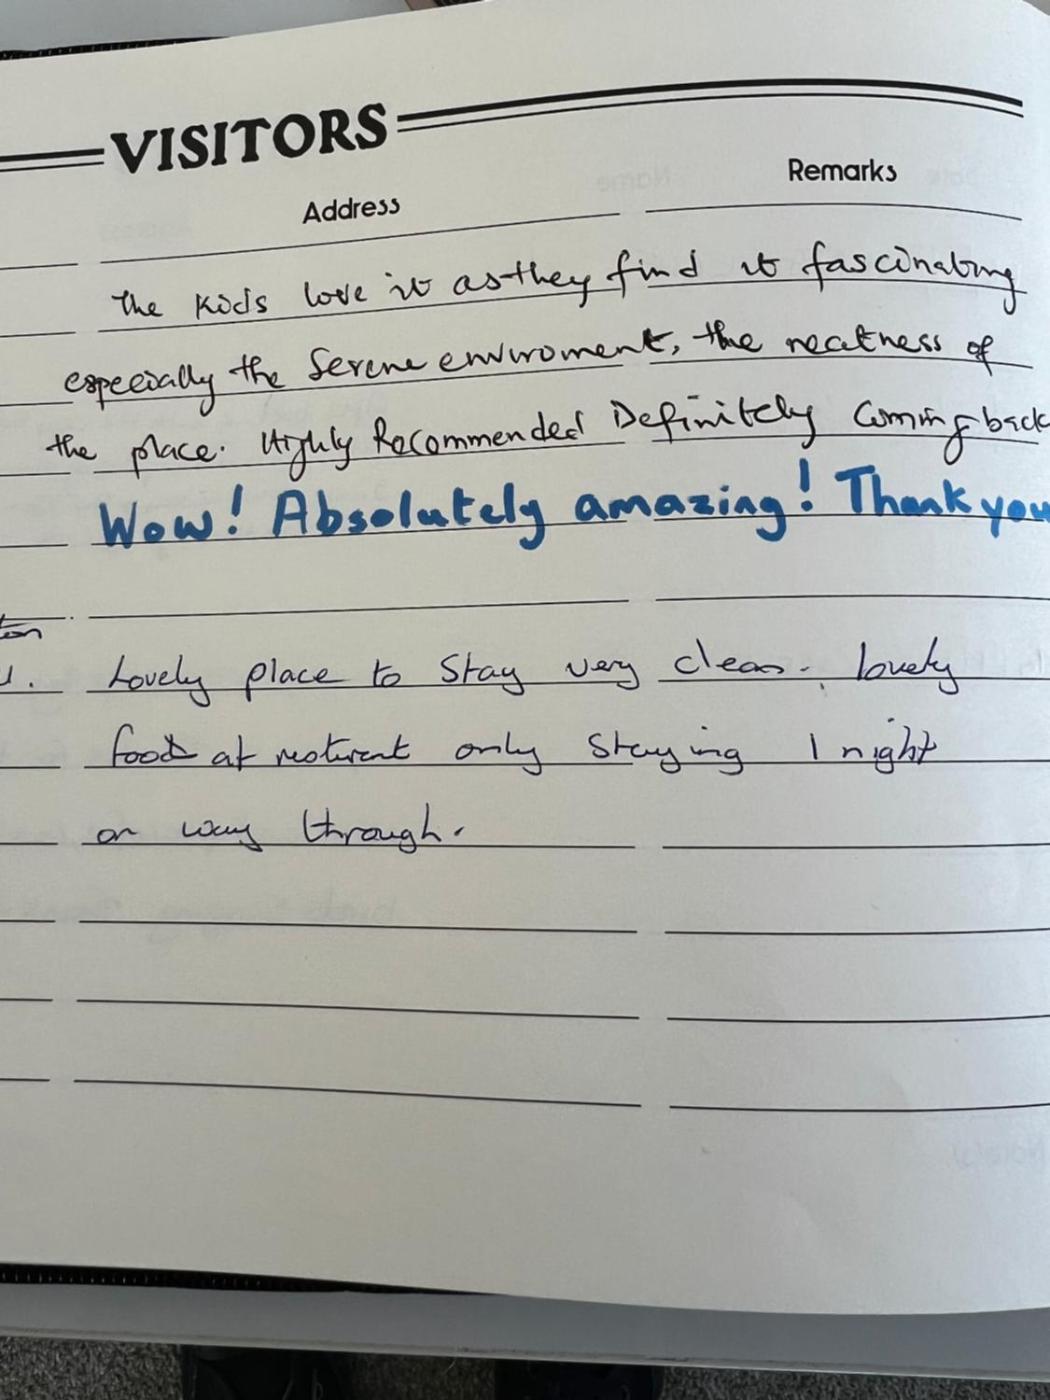 VISITORS
Address
Remarks
The kids love it as they find it fascinating
especially the Serene enviroment, the neatness of
the place. Highly Recommended Definitely Coming back
Wow! Absolutely amazing! Thank you
Lovely place to Stay very clean. lovely
food at resturent only staying 1 night
on way through.